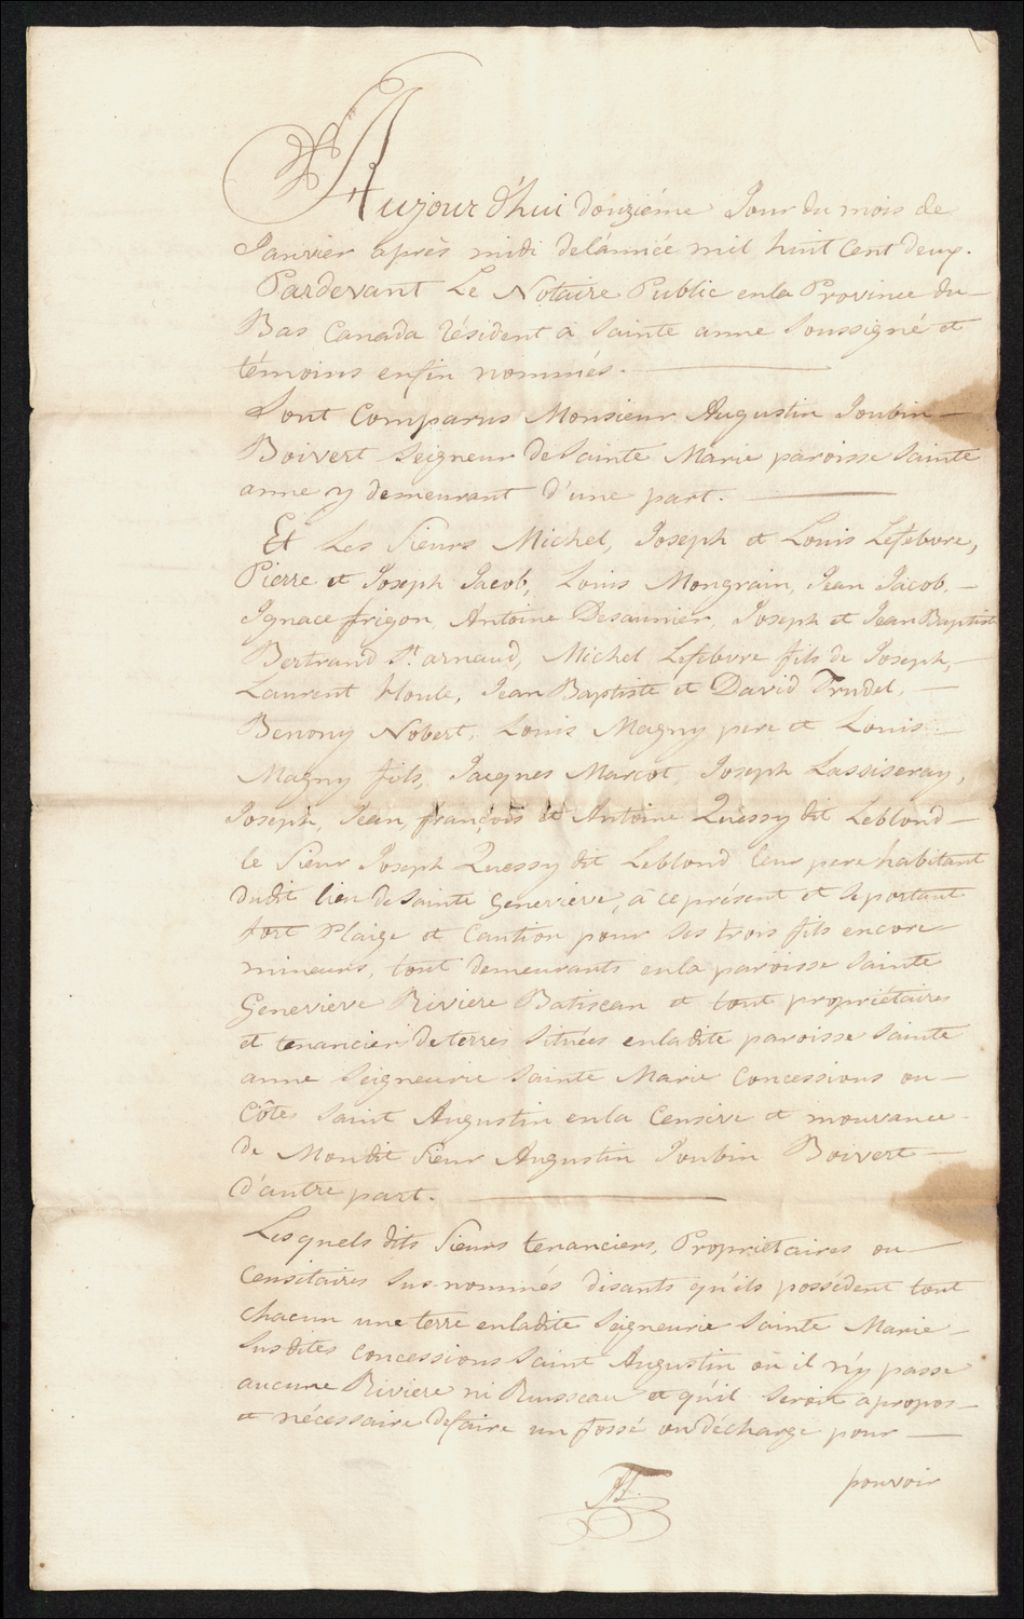 Aujour d'hui douziéme Jour du mois de
Janvier après midi del'année mil huit Cent deux.
Pardevant Le Notaire Public enla Province du
Bas Canada résident a Sainte anne Soussigné et
témoins enfin nommés.
Sont Comparus Monsieur Augustin Joubin
Boivert Seigneur de Sainte Marie paroisse Sainte
anne y demeurant d'une part.
Et Les Sieurs Michel, Joseph et Louis Lefebvre,
Pierre et Joseph Jacob, Louis Mongrain, Jean Jacob,
Ignace frigon, Antoine Desaunier, Joseph et Jean Baptiste
Bertrand St. arnaud, Michel Lefebvre fils de Joseph,
Laurent Houle, Jean Baptiste et David Trudel,
Benony Nobert, Louis Magny pere et Louis
Magny fils, Jacques Marcot, Joseph Lassiseray,
Joseph, Jean, françois et Antoine Quessy dit Leblond
le Sieur Joseph Quessy dit Leblond leur pere habitant
dudit lieu de Sainte Genevieve, a ce présent et Se portant
fort Plaige et Caution pour Ses trois fils encore
mineurs, tout demeurants enla paroisse Sainte
Genevieve Riviere Batiscan et tout propriétaires
et tenancier de terres Situées enladite paroisse Sainte
anne Seigneurie Sainte Marie Concessions ou
Côtes Saint Augustin enla Censive et mouvance
de Mondit Sieur Augustin Joubin Boivert
d'autre part.
Lesquels dits Sieurs tenanciers, Proprietaires ou
Censitaires Sus-nommés disants qu'ils possédent tout
chacun une terre enladite Seigneurie Sainte Marie
Susdites Concessions Saint Augustin où il n'y passe
aucune Riviere ni Ruisseau et qu'il Seroit apropos
et nécessaire defaire un fossé ou décharge pour
pouvoir